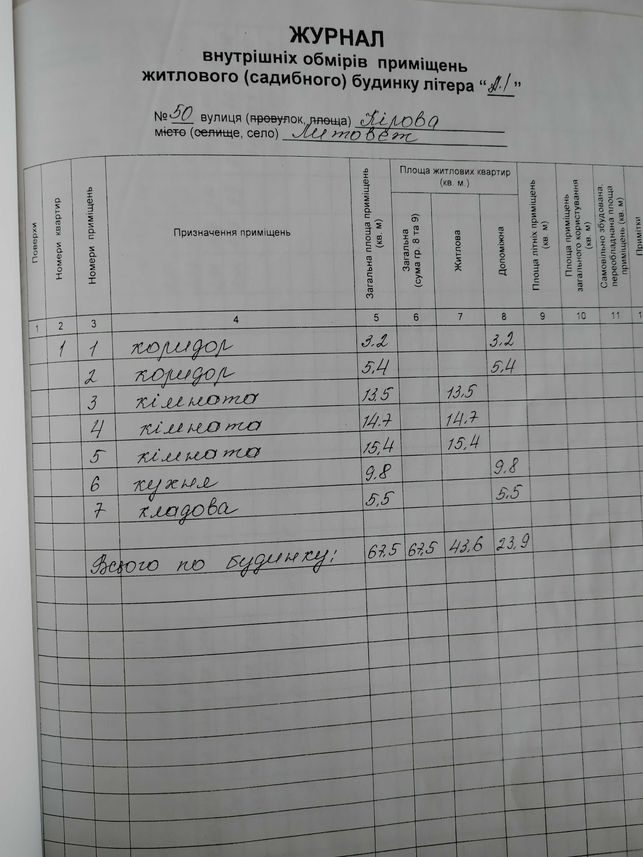 ЖУРНАЛ
внутрішніх обмірів приміщень
житлового (садибного) будинку літера "А-І"
№ 50 вулиця (провулок, площа) Кірова
місто (селище, село) Литовеж
Поверхи
Номери квартир
Номери приміщень
Призначення приміщень
Загальна площа приміщень (кв. м)
Площа житлових квартир (кв. м.)
Загальна (сума гр. 8 та 9)
Житлова
Допоміжна
Площа літніх приміщень (кв. м)
Площа приміщень загального користування (кв. м)
Самовільно збудована, переобладнана площа приміщень (кв. м)
Примітки
1 2 3 4 5 6 7 8 9 10 11 1
1 1 коридор 3.2 3.2
2 коридор 5.4 5.4
3 кімната 13.5 13.5
4 кімната 14.7 14.7
5 кімната 15,4 15,4
6 кухня 9.8 9.8
7 кладова 5.5 5.5
Всього по будинку: 67.5 67.5 43.6 23.9